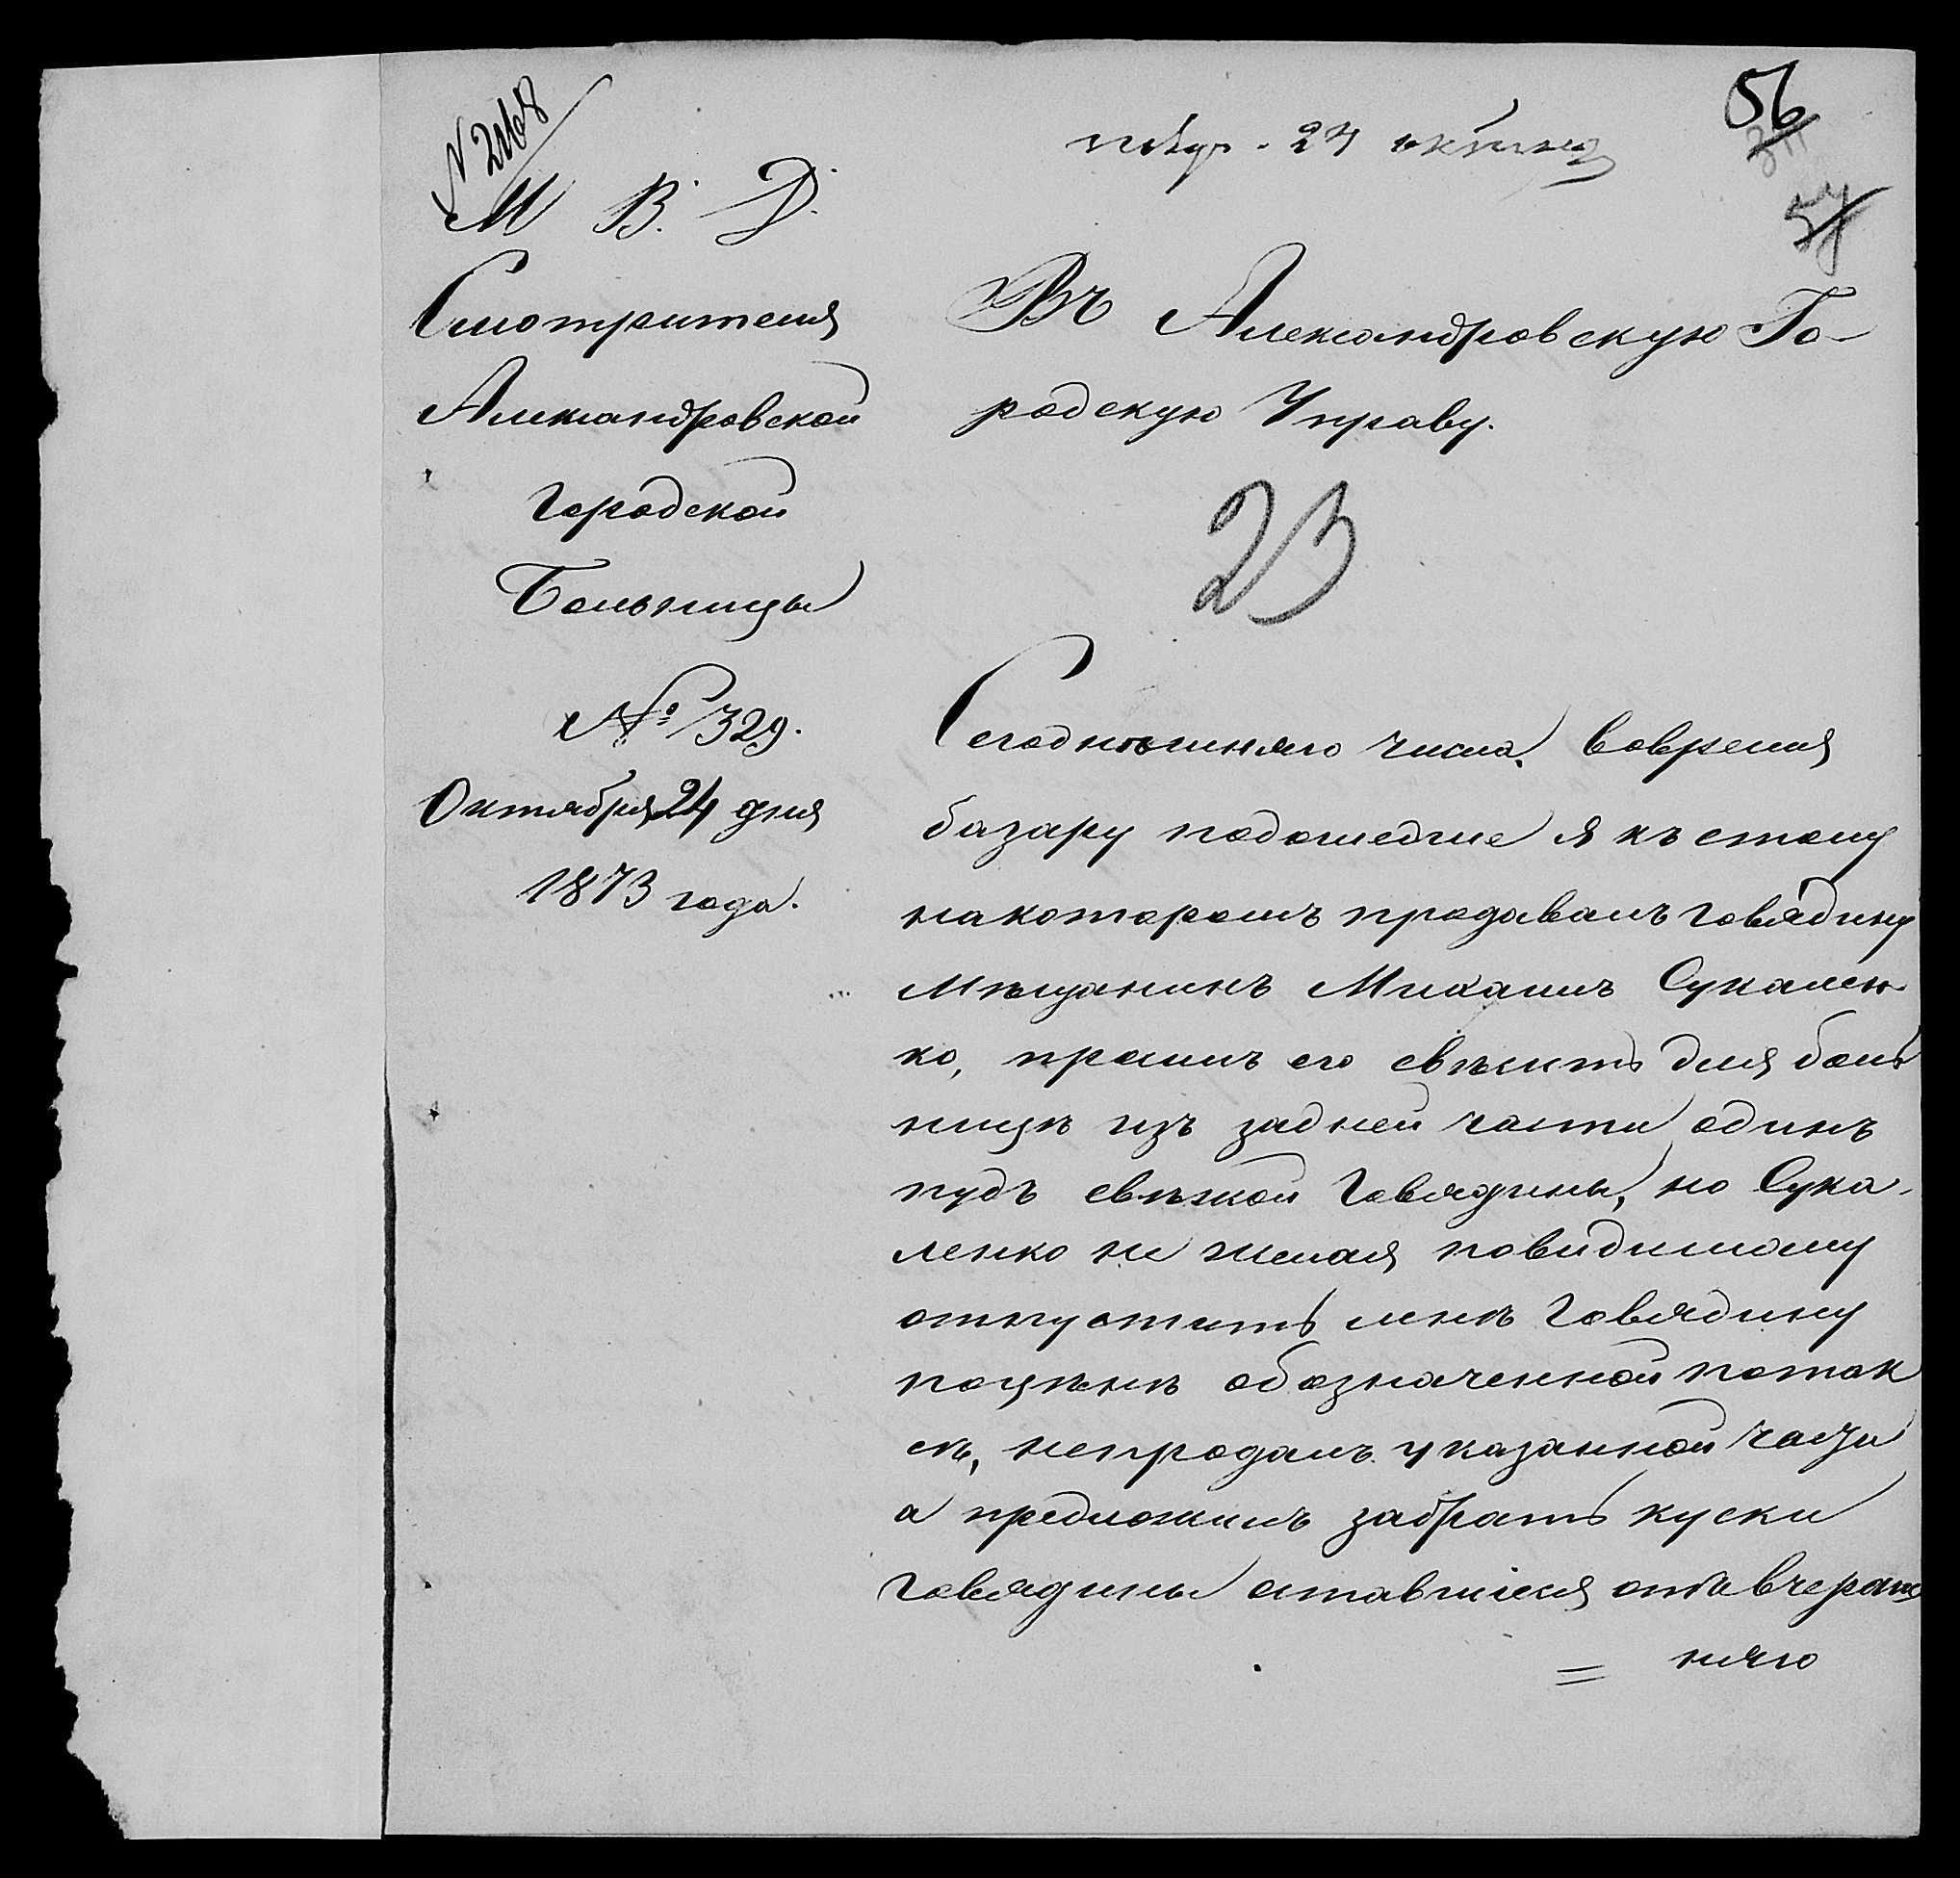 N 2168
24
56
57
М. В. Д.
Смотрителя
Александровской
Городской
Больницы
№ 329.
Октября 24 дня
1873 года.
Въ Александровскую Го-
родскую Управу.
23
Сегодняшняго числа, вовремя
базару подошедше я къ столу
накоторомъ продавалъ говядину
Мѣщанинъ Михаилъ Сукален-
ко, просилъ его свѣсить для боль
ницы изъ задней части одинъ
пудъ свѣжой говядины, но Сука-
ленко не желая повидимому
отпустить мнѣ говядину
поцѣнѣ обозначенной потак
сѣ, непродалъ указанной части
а предложилъ забрать куски
говядины оставшіеся отъ вчераш
= няго